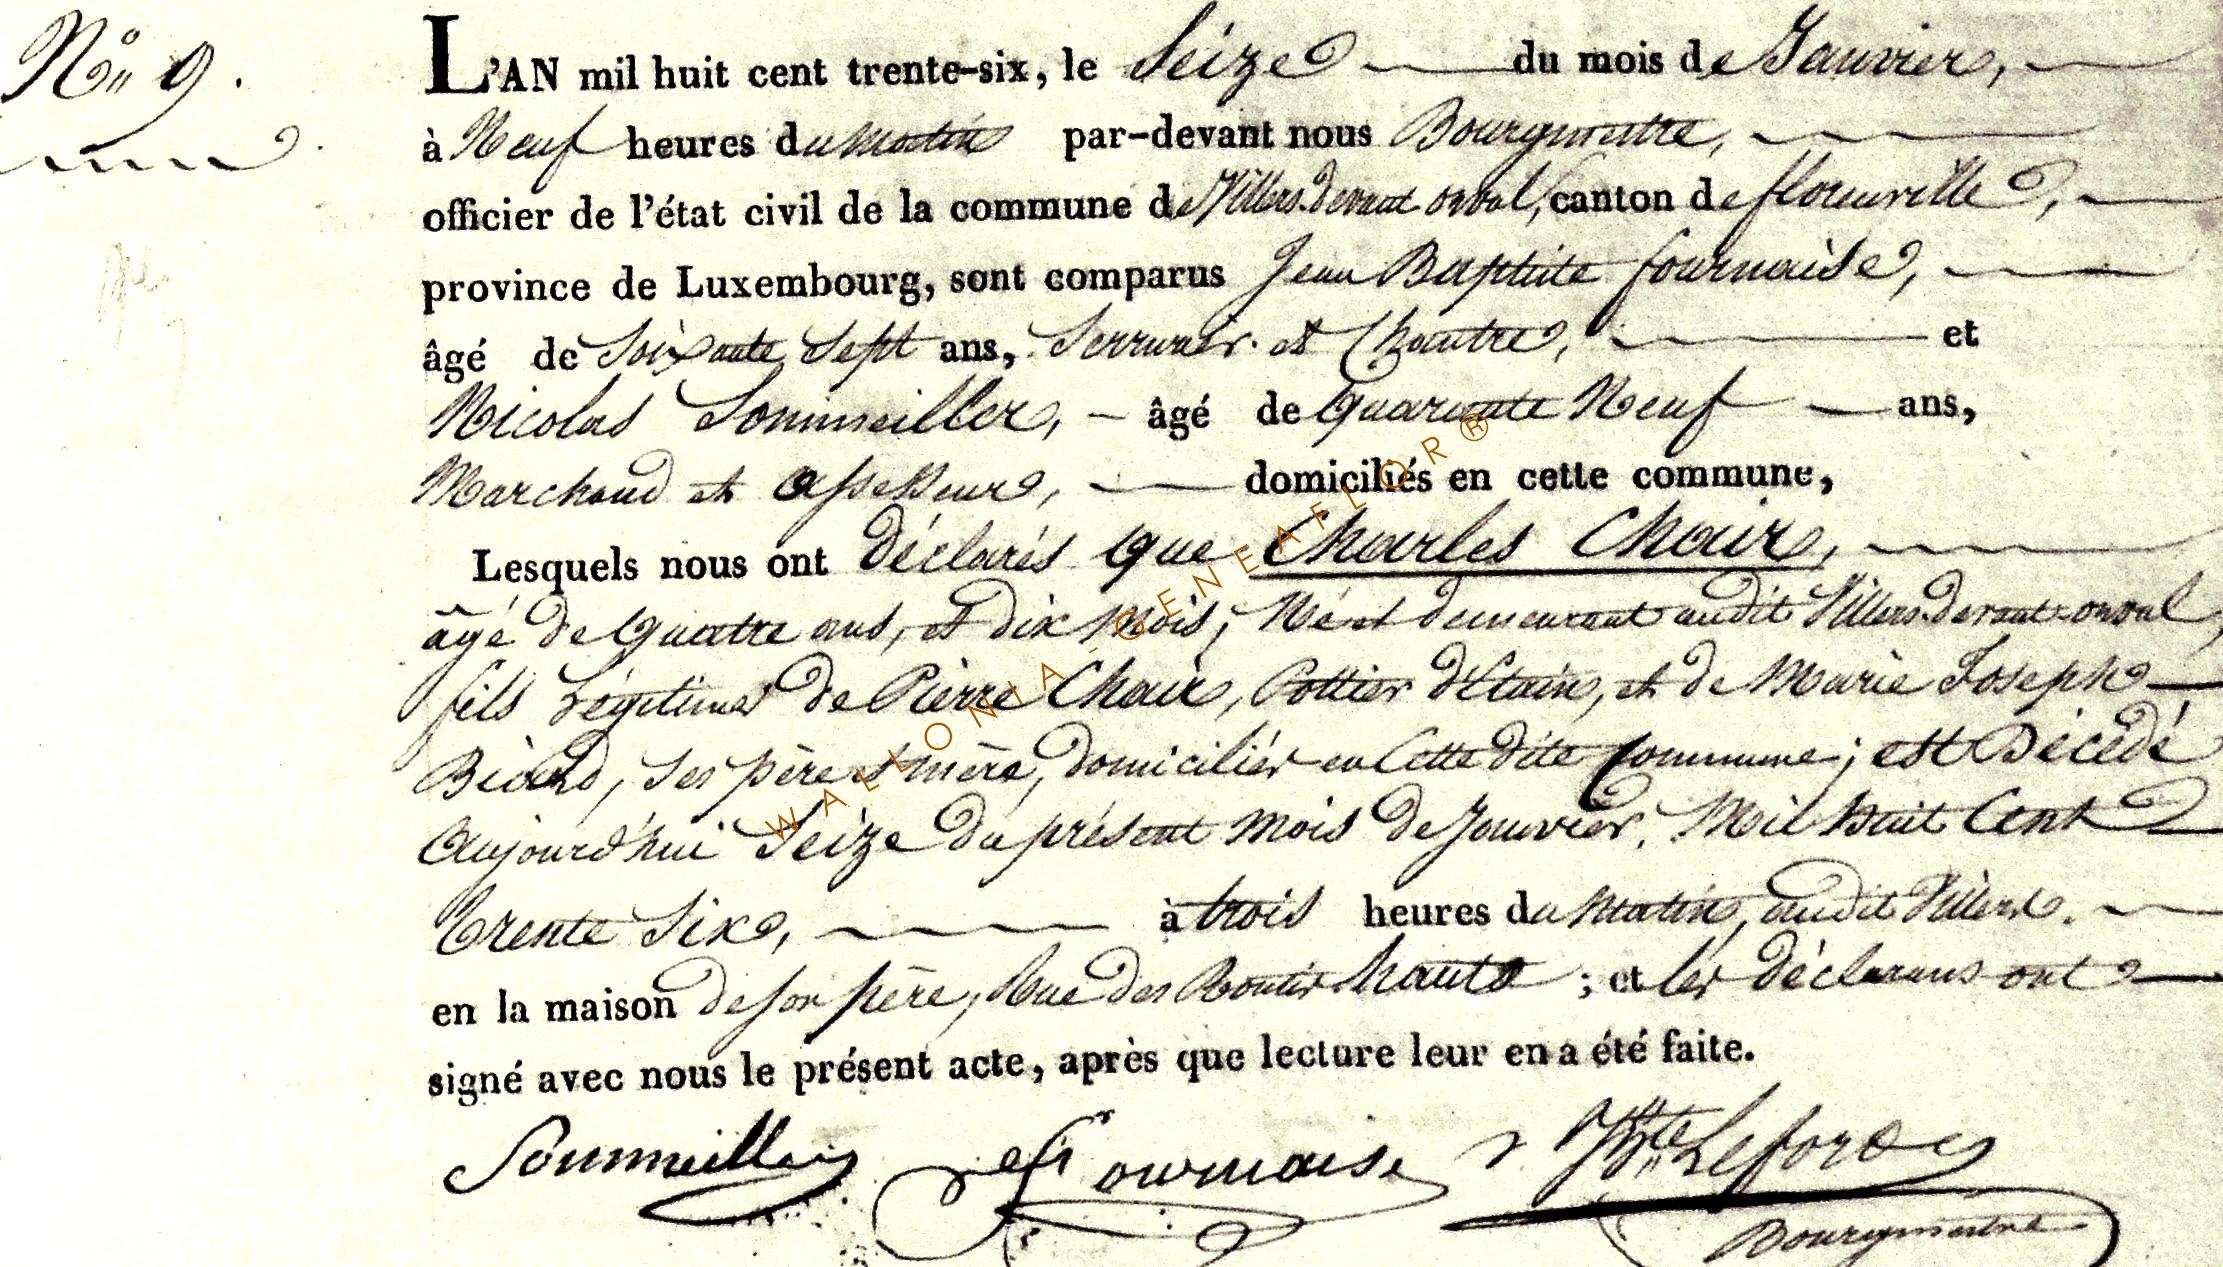 N° 9.
L'AN mil huit cent trente-six, le Seize du mois de Janvier,
à Neuf heures du matin par-devant nous Bourgmestre,
officier de l'état civil de la commune de Villers-devant orval, canton de florenville,
province de Luxembourg, sont comparus Jean Baptiste fournaise,
âgé de Soixante Sept ans, Serrurier et Chantre, et
Nicolas Sommeiller, âgé de Quarante Neuf ans,
Marchand et assesseur, domiciliés en cette commune,
Lesquels nous ont déclarés que Charles Choir,
âgé de Quatre ans, et dix Mois, Né et demeurant audit Villers-devant-orval,
fils Légitime de Pierre Choir, Pottier d'Etain, et de Marie Joseph
ses père et mère, domiciliés en Cette dite Commune; est Décédé
Aujourd'hui Seize du présent mois de Janvier, Mil huit Cent
Trente Six, à trois heures du Matin, audit Villers.
en la maison de son père, Rue des haute ; et les déclarans ont
signé avec nous le présent acte, après que lecture leur en a été faite.
Sommeiller Fournaise JBte Leforo
Bourgmestre
WALLONIA-GENEAFLOR®